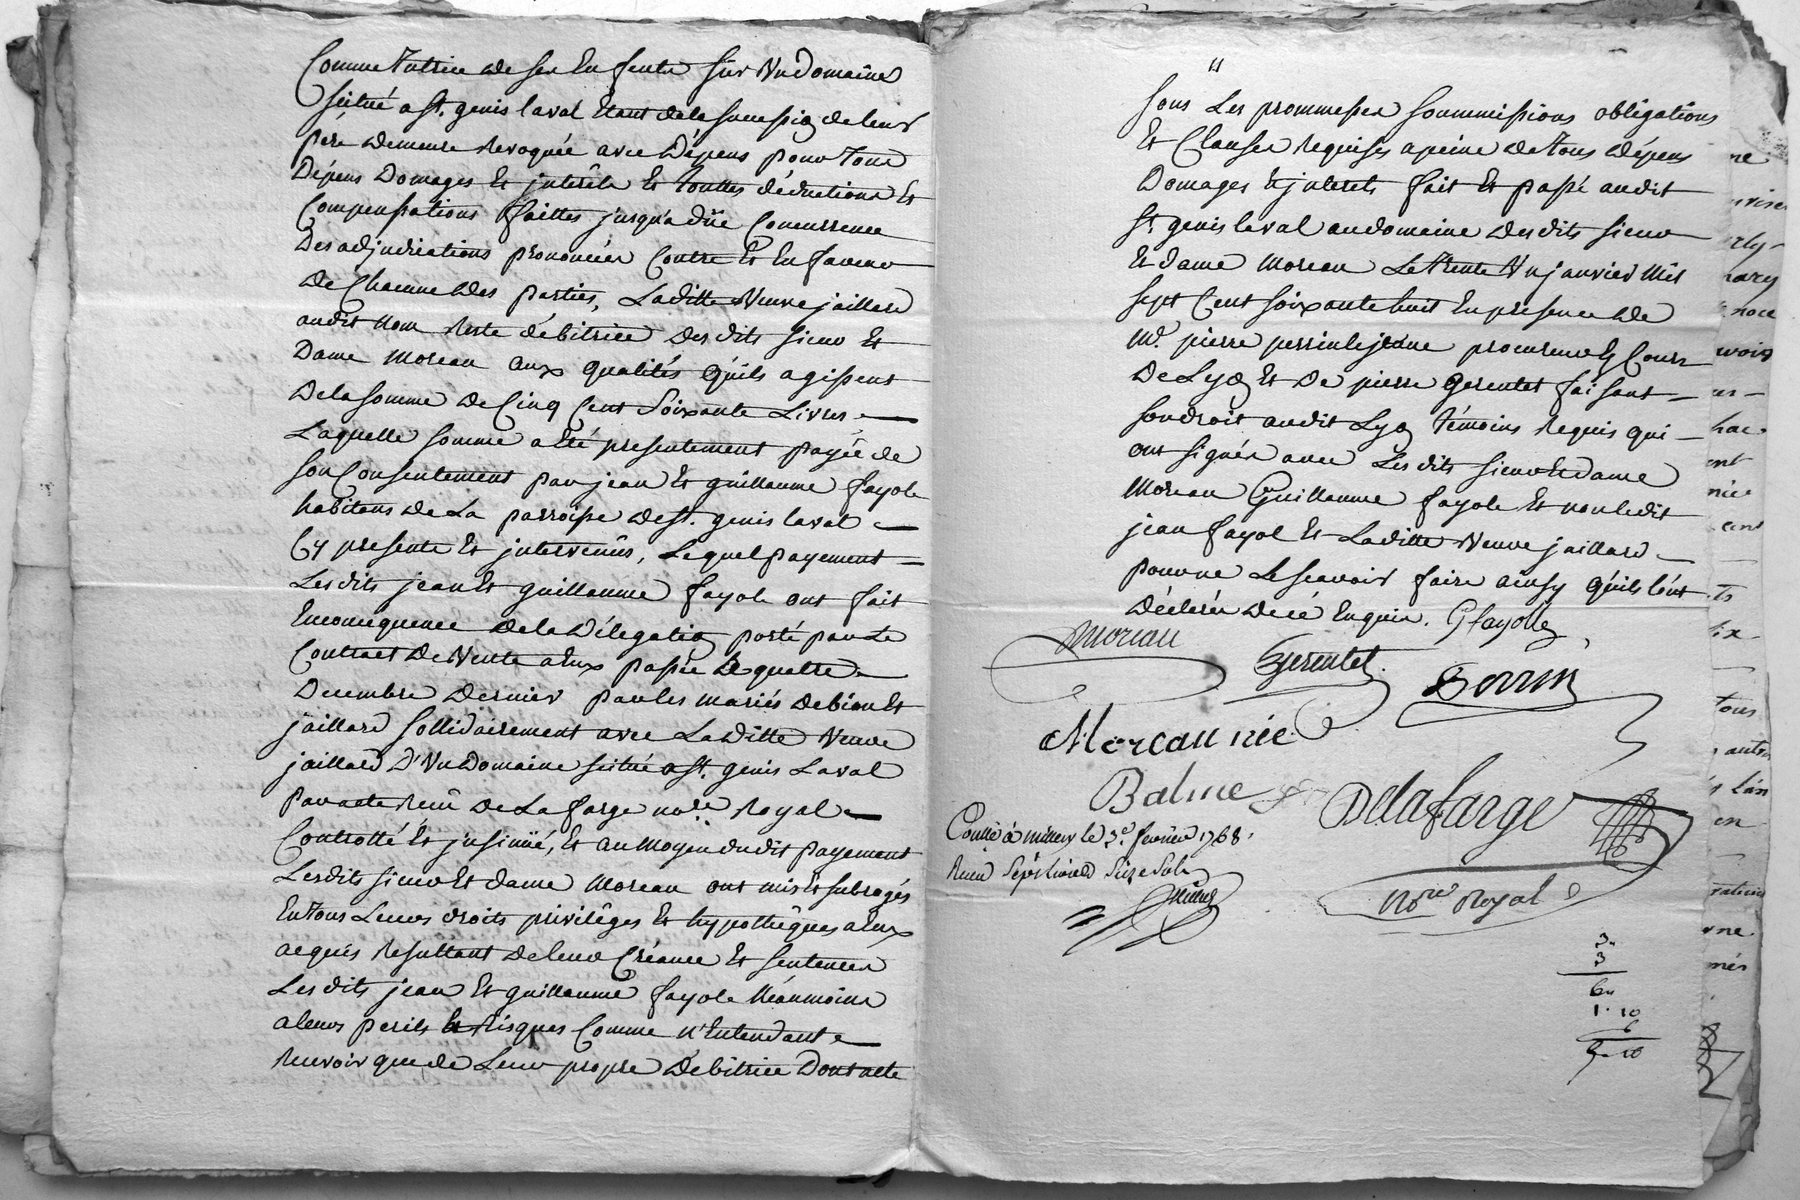 Comme tutrice de ses Enfents sur Un domaine
scitué a St. genis laval Etant de la succession de leur
père demeure revoquée avec Dépens pour tous
Dépens Domages Et jnterêts Et touttes déductions Et
Compensations faittes jusqu'a düe Concurrence
Des adjudications prononcées Contre Et En faveur
de Chacune des parties, Laditte Veuve jaillard
audit Nom Reste débitrice des dits sieur Et
Dame Moreau aux qualités qu'ils agissent
De la somme de Cinq Cent Soixante Livres
Laquelle somme a été presentement payée de
son Consentement par jean Et guillaume fayole
habitans de La parroisse de St. genis laval
Cy presents Et jntervenûs, Lequel payement
Les dits jean Et guillaume fayole ont fait
En consequence de la Délegation porté par Le
Contract De Vente a Eux passée Le quattre
Decembre dernier par les mariés Debion Et
jaillard sollidairement avec Laditte Veuve
jaillard D'Un Domaine scitué a St. genis Laval
par acte Recû De La farge no.re Royal
Controllé Et jnsinüé, Et au Moyen dudit payement
Lesdits sieur Et dame Moreau ont mis Et subrogés
En tous Leurs droits privilêges Et hypothêques a Eux
acquis Resultant de leur Créance Et sentences
Les dits jean Et guillaume fayole Néanmoins
a leurs perils Et risques Comme N'Entendant
recevoir que de Leur propre Débitrice Dont acte
sous Les prommesses soummissions obligations
Et Clauses requises a peine de tous dépens
Domages Et jnterets fait Et passé audit
St. genis laval au domaine desdits sieur
Et dame Moreau Le trente Un janvier Mil
sept Cent soixante huit En présence de
Me. pierre perrin le jeune procureur Es Cours
De Lyon Et De pierre gerentet faisant
son droit audit Lyon témoins Requis qui
ont signés avec Les dits sieur Et dame
Moreau Guillaume fayole Et non ledit
jean fayol Et Laditte Veuve jaillard
pour ne Le scavoir faire ainsy qu'ils l'ont
déclarés de ce Enquis. G fayolle
Moreau
Gerentet
Perrin
Moreau née
Balme
Delafarge
Conllé à millery le 3e. fevrier 1768.
Recu Sept Livres Seize Sols
Nore Royal
3
3
6
1. 10
6
9. 10